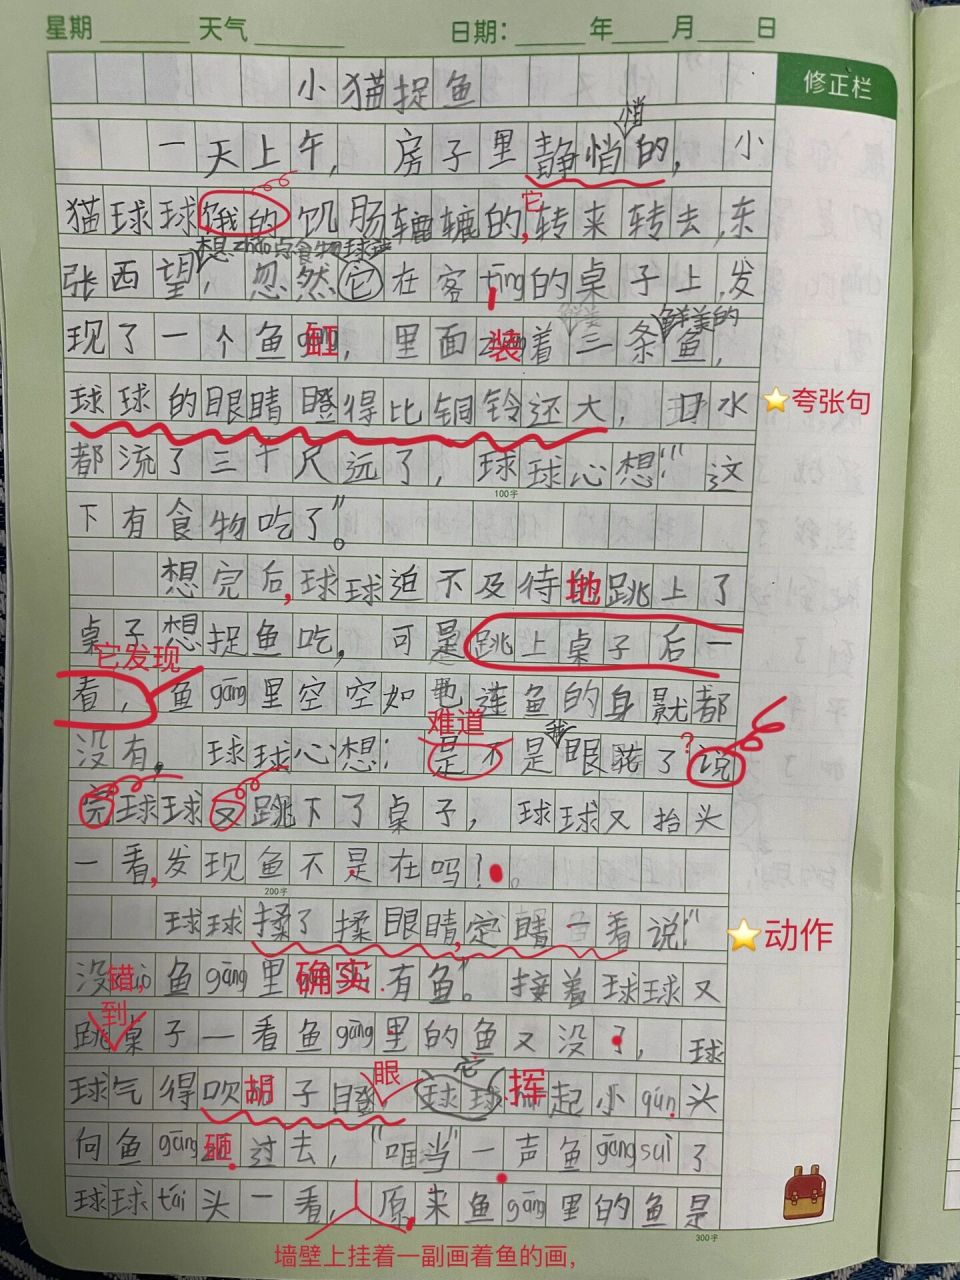 星期 天气 日期： 年 月 日
修正栏
小猫捉鱼
悄
一天上午，房子里静悄的，小
它
猫球球饿的饥肠辘辘的，转来转去，东
想zhǎo点食物球球
张西望，忽然它在客tīng的桌子上，发
鲜美的
现了一个鱼缸，里面装着三条鱼，
球球的眼睛瞪得比铜铃还大，口水
⭐夸张句
都流了三千尺远了，球球心想：“这
100字
下有食物吃了”。
想完后，球球迫不及待地跳上了
桌子想捉鱼吃，可是跳上桌子后一
它发现
看，鱼gāng里空空如也连鱼的身影都
难道 我
没有，球球心想：是不是眼花了？说
完球球又跳下了桌子，球球又抬头
一看，发现鱼不是在吗！。
200字
球球揉了揉眼睛，定睛一看说：“
⭐动作
没错，鱼gāng里确实有鱼”。接着球球又
到
跳桌子一看鱼gāng里的鱼又没了，球
眼 它
球气得吹胡子瞪 球球挥起小gùn头
向鱼gāng砸过去，“哐当”一声鱼gāngsuì了
球球tái头一看，原来鱼gāng里的鱼是
300字
墙壁上挂着一副画着鱼的画，